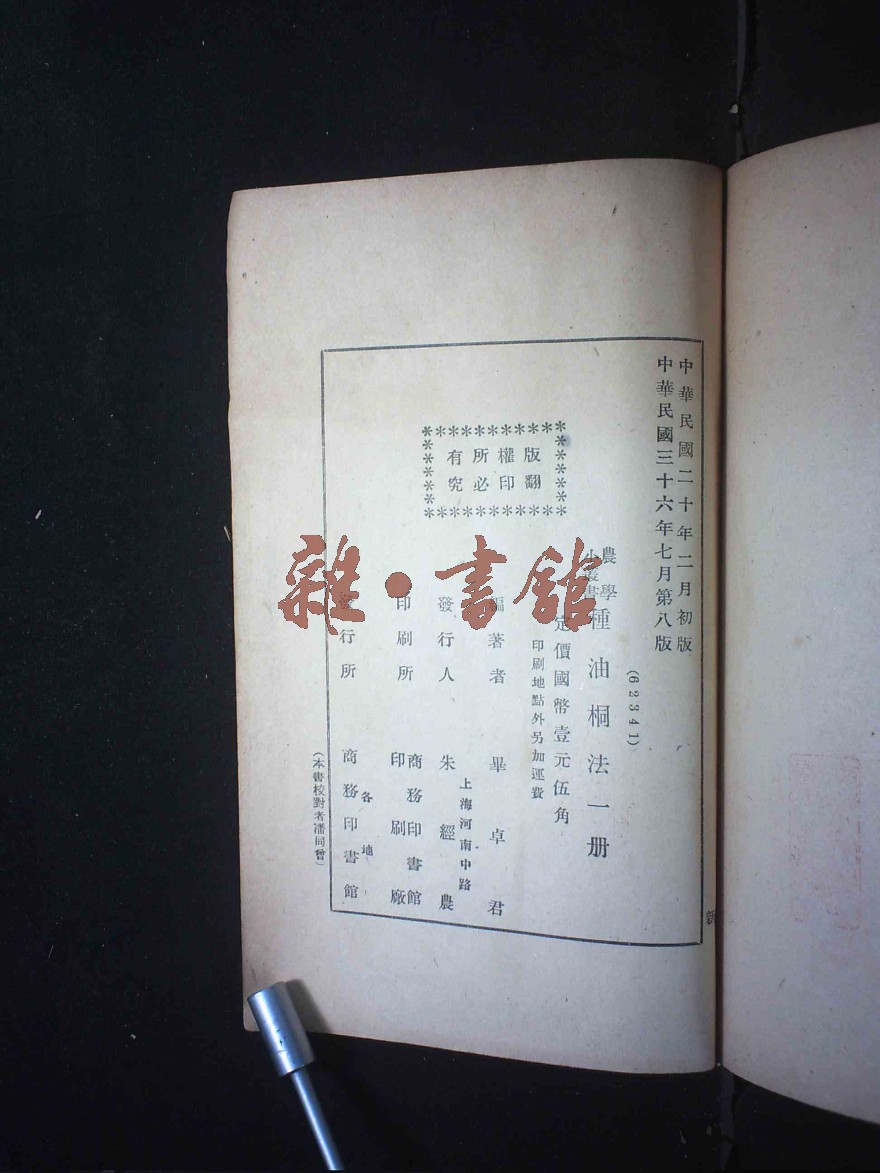 中華民國二十年二月初版
中華民國三十六年七月第八版
(62341)
農學
小叢書
種油桐法一册
定價國幣壹元伍角
印刷地點外另加運費
版權所有
翻印必究
編著者 畢卓君
上海河南中路
發行人 朱經農
印刷所 商務印書館
印刷廠
各地
發行所 商務印書館
(本書校對者潘同曾)
新
雜·書館